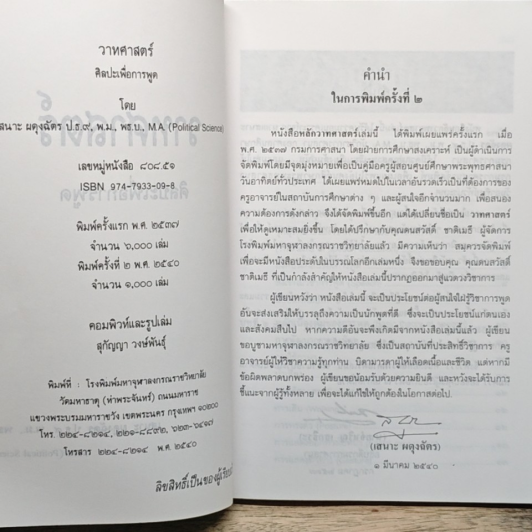 วาทศาสตร์
ศิลปะเพื่อการพูด
โดย
เสนาะ ผดุงฉัตร ป.ธ.๙, พ.ม., พธ.บ., M.A. (Political Science)
เลขหมู่หนังสือ ๘๐๘.๕๑
ISBN 974-7933-09-8
พิมพ์ครั้งแรก พ.ศ. ๒๕๓๗
จำนวน ๖,๐๐๐ เล่ม
พิมพ์ครั้งที่ ๒ พ.ศ. ๒๕๔๐
จำนวน ๑,๐๐๐ เล่ม
คอมพิวท์และรูปเล่ม
สุกัญญา วงษ์พันธุ์
พิมพ์ที่ : โรงพิมพ์มหาจุฬาลงกรณราชวิทยาลัย
วัดมหาธาตุ (ท่าพระจันทร์) ถนนมหาราช
แขวงพระบรมมหาราชวัง เขตพระนคร กรุงเทพฯ ๑๐๒๐๐
โทร. ๒๒๔-๘๒๑๔, ๒๒๑-๘๘๙๒,
โทรสาร ๒๒๔-๘๒๑๔ พ.ศ. ๒๕๔๐
ลิขสิทธิ์เป็นของผู้เรียบ
คำนำ
ในการพิมพ์ครั้งที่ ๒
หนังสือหลักวาทศาสตร์เล่มนี้ ได้พิมพ์เผยแพร่ครั้งแรก เมื่อ
พ.ศ. ๒๕๓๗ กรมการศาสนา โดยฝ่ายการศึกษาสงเคราะห์ เป็นผู้ดำเนินการ
จัดพิมพ์โดยมีจุดมุ่งหมายเพื่อเป็นคู่มือครูผู้สอนศูนย์ศึกษาพระพุทธศาสนา
วันอาทิตย์ทั่วประเทศ ได้เผยแพร่หมดไปในเวลาอันรวดเร็วเป็นที่ต้องการของ
ครูอาจารย์ในสถาบันการศึกษาต่าง ๆ และผู้สนใจอีกจำนวนมาก เพื่อสนอง
ความต้องการดังกล่าว จึงได้จัดพิมพ์ขึ้นอีก แต่ได้เปลี่ยนชื่อเป็น วาทศาสตร์
เพื่อให้ดูเหมาะสมยิ่งขึ้น โดยได้ปรึกษากับคุณตนสวัสดิ์ ชาติเมธี ผู้จัดการ
โรงพิมพ์มหาจุฬาลงกรณราชวิทยาลัยแล้ว มีความเห็นว่า สมควรจัดพิมพ์
เพื่อจะมีหนังสือประดับในบรรณโลกอีกเล่มหนึ่ง จึงขอขอบคุณ คุณตนสวัสดิ์
ชาติเมธี ที่เป็นกำลังสำคัญให้หนังสือเล่มนี้ปรากฏออกมาสู่แวดวงวิชาการ
ผู้เขียนหวังว่า หนังสือเล่มนี้ จะเป็นประโยชน์ต่อผู้สนใจใฝ่รู้วิชาการพูด
อันจะส่งเสริมให้บรรลุถึงความเป็นนักพูดที่ดี ซึ่งจะเป็นประโยชน์แก่ตนเอง
และสังคมสืบไป หากความดีอันจะพึงเกิดมีจากหนังสือเล่มนี้แล้ว ผู้เขียน
ขอบูชามหาจุฬาลงกรณราชวิทยาลัย ซึ่งเป็นสถาบันที่ประสิทธิ์วิชาการ ครู
อาจารย์ผู้ให้วิชาความรู้ทุกท่าน บิดามารดาผู้ให้เลือดเนื้อและชีวิต แต่หากมี
ข้อผิดพลาดบกพร่อง ผู้เขียนขอน้อมรับด้วยความยินดี และหวังจะได้รับการ
ชี้แนะจากผู้รู้ทั้งหลาย เพื่อจะได้แก้ไขให้ถูกต้องในโอกาสต่อไป.
(เสนาะ ผดุงฉัตร)
๑ มีนาคม ๒๕๔๐